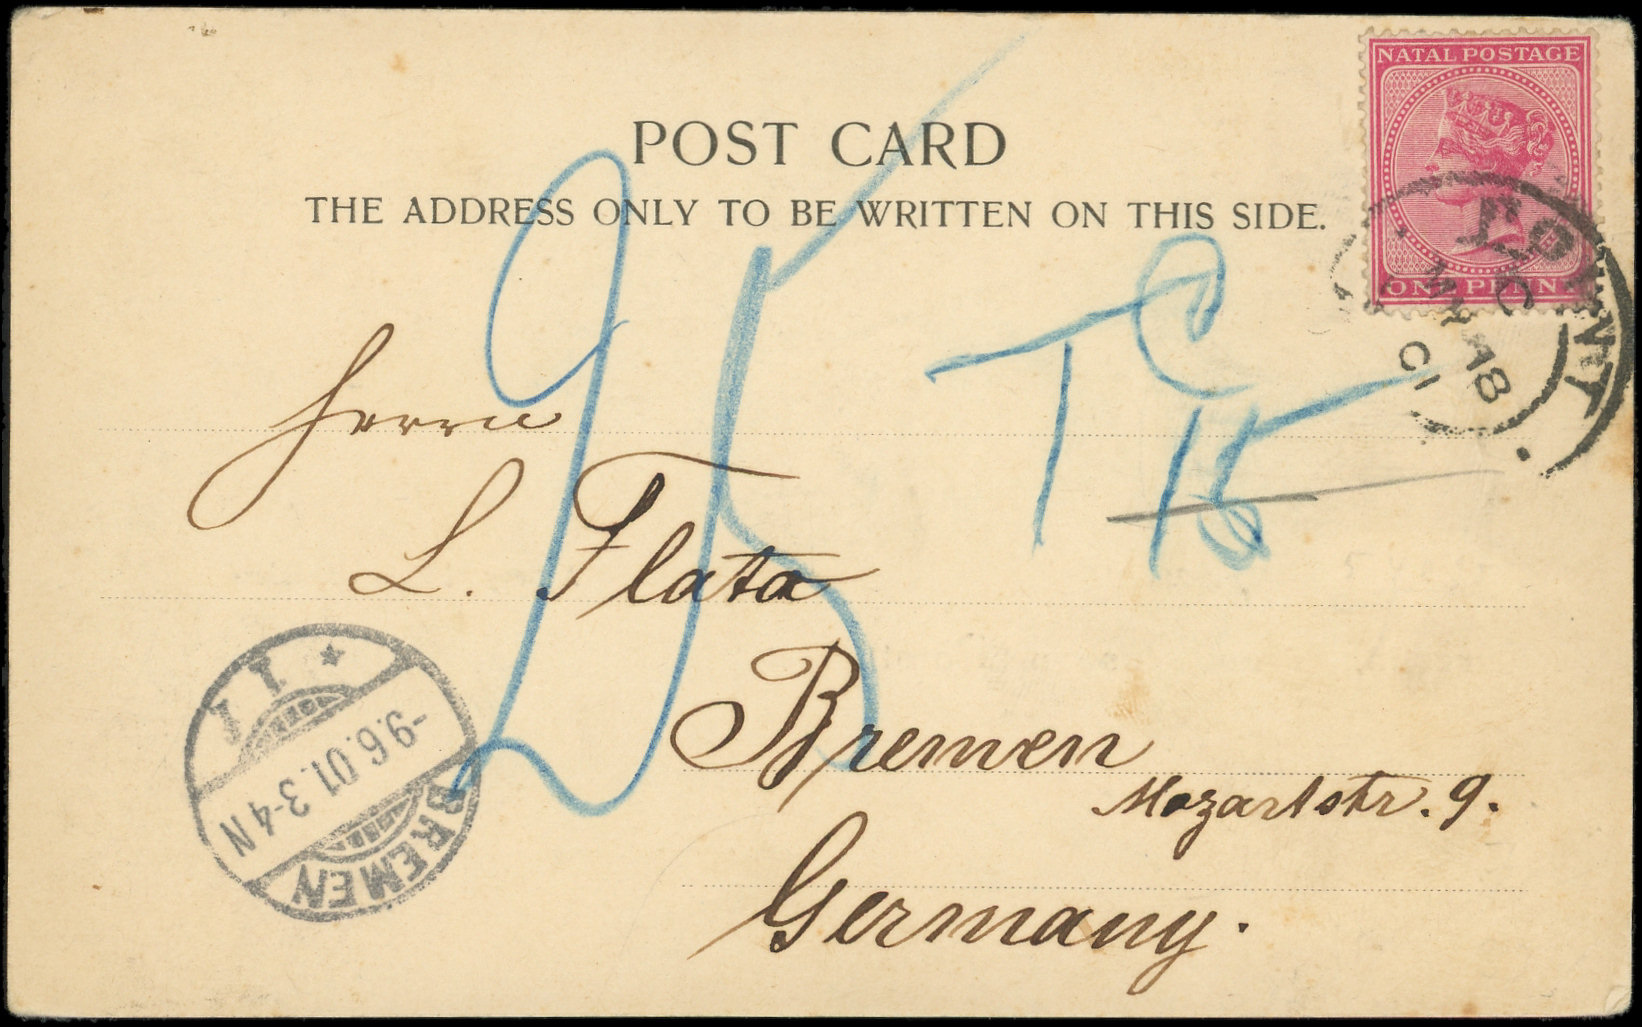 NATAL POSTAGE
ONE PENNY
POST CARD
THE ADDRESS ONLY TO BE WRITTEN ON THIS SIDE.
POINT
C
MY 18
01
25
T
Herrn
L. Flata
Bremen
Mozartstr. 9.
Germany.
BREMEN
-9.6.01.3-4N
1 1